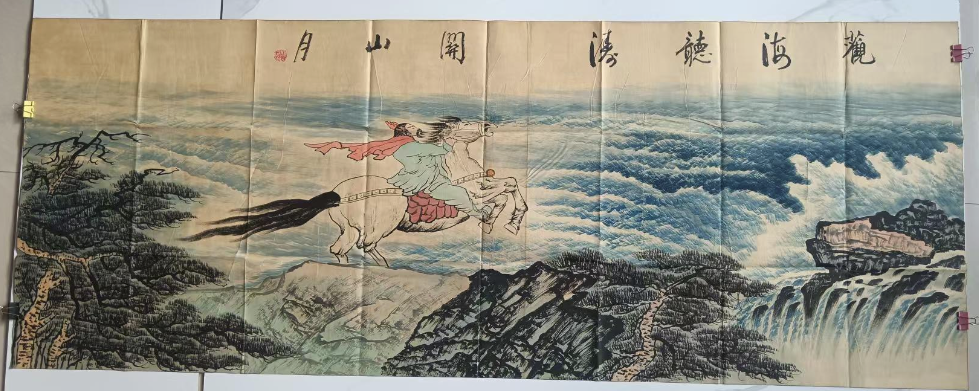 觀海聽濤 關山月